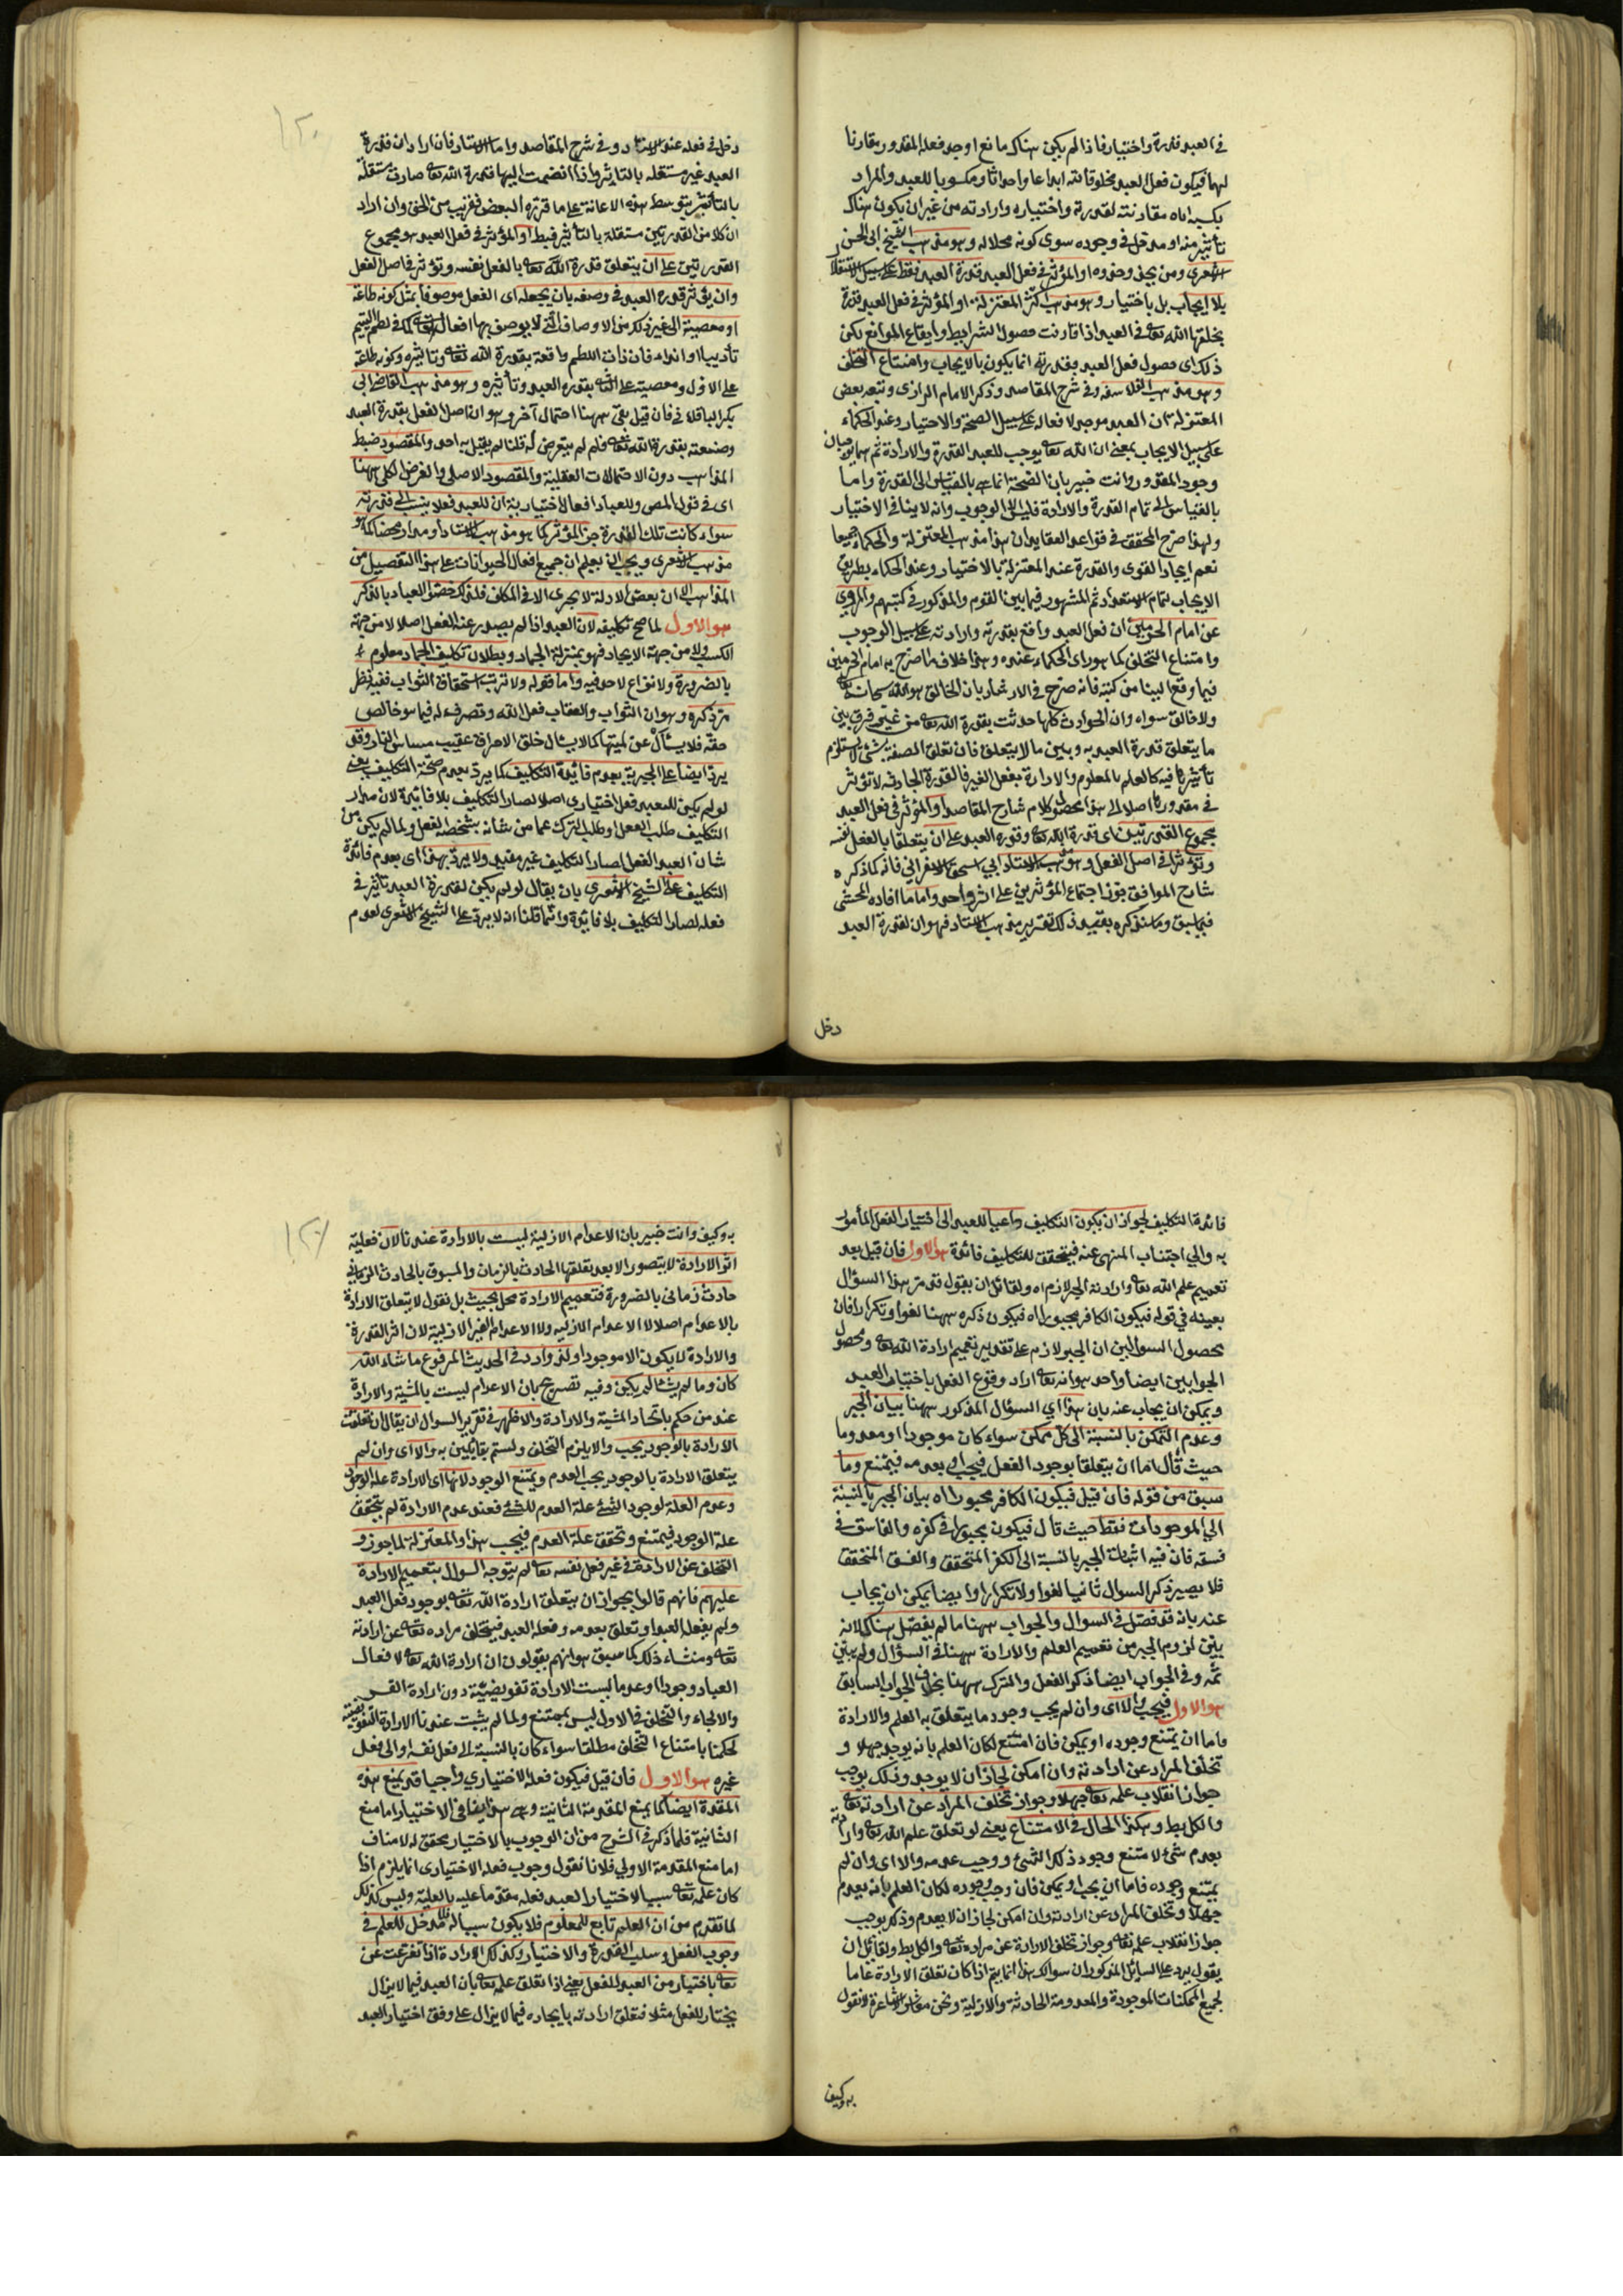 في العبد قدرة واختيارا فاذا لم يكن هناك مانع اوجد فعله المقدور مقارنا
لهما فيكون فعل العبد مخلوقا لله ابداعا واحداثا ومكسوبا للعبد والمراد
بكسبه اياه مقارنته لقدرته واختياره وارادته من غير ان يكون هناك
تأثير منه او مدخل في وجوده سوى كونه محلا له وهو مذهب الشيخ ابي الحسن
الاشعري ومن يحذو حذوه او المؤثر في فعل العبد قدرة العبد فقط على سبيل الاستقلال
بلا ايجاب بل باختيار وهو مذهب اكثر المعتزلة او المؤثر في فعل العبد قدرة
يخلقها الله تعالى في العبد اذا قارنت حصول الشرايط وارتفاع الموانع لكن
ذلك اى حصول فعل العبد بقدرته انما يكون بالايجاب وامتناع التخلف
وهو مذهب الفلاسفة وفي شرح المقاصد وذكر الامام الرازى وتبعه بعض
المعتزلة ان العبد موجد لافعاله على سبيل الصحة والاختيار وعند الحكماء
على سبيل الايجاب بمعنى ان الله تعالى يوجب للعبد القدرة والارادة ثم هما يوجبان
وجود المقدور وانت خبير بان الصحة انما هى بالقياس الى القدرة واما
بالقياس الى تمام القدرة والارادة فليس الا الوجوب وانه لا ينافى الاختيار
ولهذا صرح المحقق في قواعد العقايد ان هذا مذهب المعتزلة والحكماء جميعا
نعم ايجاد القوى والقدرة عند المعتزلة بالاختيار وعند الحكماء بطريق
الايجاب لتمام الاستعداد ثم المشهور فيما بين القوم والمذكور في كتبهم والمروى
عن امام الحرمين ان فعل العبد واقع بقدرته وارادته على سبيل الوجوب
وامتناع التخلف كما هو راى الحكماء عنده وهذا خلاف ما صرح به امام الحرمين
فيما وقع الينا من كتبه فانه صرح في الارشاد بان الخالق هو الله سبحانه
ولا خالق سواه وان الحوادث كلها حدثت بقدرة الله تعالى من غير فرق بين
ما يتعلق قدرة العبد به وبين ما لا يتعلق فان تعلق الصفة بشئ لا يستلزم
تأثيرها فيه كالعلم بالمعلوم والارادة بفعل الغير فالقدرة الحادثة لا تؤثر
في مقدورها اصلا الى هذا محصول كلام شارح المقاصد او المؤثر في فعل العبد
مجموع القدرتين اى قدرة الله تعالى وقدرة العبد على ان يتعلقا بالفعل نفسه
وتؤثرا في اصل الفعل وهو مذهب الاستاد ابي اسحق الاسفرائني فانه كما ذكره
شارح المواقف جوز اجتماع المؤثرين على اثر واحد واما ما افاده المحشى
فيما سبق وما سنذكره بعيد ذلك تقرير مذهب الاستاد فهو ان لقدرة العبد
دخل
١٢٠
دخل في فعله عند الاستاد وفي شرح المقاصد واما الاستاد فان اراد ان قدرة
العبد غير مستقلة بالتاثير واذا انضمت اليها قدرة الله تعالى صارت مستقلة
بالتأثير بتوسط هذه الاعانة على ما قرره البعض فقريب من الحق وان اراد
ان كلا من القدرتين مستقلة بالتأثير فبط او المؤثر في فعل العبد هو مجموع
القدرتين على ان يتعلق قدرة الله تعالى بالفعل نفسه وتؤثر في اصل الفعل
وان يؤثر قدرة العبد في وصفه بان يجعله اى الفعل موصوفا بمثل كونه طاعة
او معصية الى غير ذلك من الاوصاف التي لا يوصف بها افعاله تعالى كما في لطم اليتيم
تأديبا او ايذاء فان ذات اللطم واقعة بقدرة الله تعالى وتاثيره وكونه طاعة
على الاول ومعصية على الثاني بقدرة العبد وتأثيره وهو مذهب القاضي ابي
بكر الباقلاني فان قيل بقى ههنا احتمال آخر وهو ان اصل الفعل بقدرة العبد
وصفته بقدرة الله تعالى فلم لم يتعرض له قلنا لم يقل به احد والمقصود ضبط
المذاهب دون الاحتمالات العقلية والمقصود الاصلى والغرض الكلى ههنا
اى في قول المص وللعباد افعال اختيارية ان للعبد فعلا ينسب الى قدرته
سواء كانت تلك القدرة جزء المؤثر كما هو مذهب الاستاد او مدارا محضا كما هو
مذهب الاشعرى ويجب ان يعلم ان جميع افعال الحيوانات على هذا التفصيل من
المذاهب الا ان بعض الادلة لا يجرى الا في المكلف فلذلك خصص العباد بالذكر
هو الاول لما صح تكليفه لان العبد اذا لم يصدر عنه الفعل اصلا لا من جهة
الكسب ولا من جهة الايجاد فهو بمنزلة الجماد وبطلان تكليف الجماد معلوم
بالضرورة ولا نزاع لاحد فيه واما قوله ولا ترتب استحقاق الثواب ففيه نظر
مر ذكره وهو ان الثواب والعقاب فعل الله وتصرف له فيما هو خالص
حقه فلا يسأل عن لميتها كما لا يسأل خلق الاحراق عقيب مساس النار وقد
يرد ايضا على الجبرية بعدم فائدة التكليف كما يرد بعدم صحة التكليف يعنى
لو لم يكن للعبد فعل اختيارى اصلا لصار التكليف بلا فائدة لان مدار
التكليف طلب الفعل او طلب الترك عما من شانه بشخصه الفعل ولما لم يكن من
شان العبد الفعل لصار التكليف غير مفيد ولا يرد بهذا اى بعدم فائدة
التكليف على الشيخ الاشعرى بان يقال لو لم يكن لقدرة العبد تأثير في
فعله لصار التكليف بلا فائدة وانما قلنا انه لا يرد على الشيخ الاشعرى لعدم
فائدة التكليف لجواز ان يكون التكليف داعيا للعبد الى اختيار الفعل المأمور
به والى اجتناب المنهى عنه فيتحقق للتكليف فائدة هو الاول فان قيل بعد
تعميم علم الله تعالى وارادته الجبر لازم اه ولقائل ان يقول قد مر هذا السؤال
بعينه في قوله فيكون الكافر مجبورا اه فيكون ذكره ههنا لغوا وتكرارا فان
محصول السوالين ان الجبر لازم على تقدير تعميم ارادة الله تعالى ومحصول
الجوابين ايضا واحد هو انه تعالى اراد وقوع الفعل باختيار العبد
ويمكن ان يجاب عنه بان هذا اى السؤال المذكور ههنا بيان الجبر
وعدم التمكن بالنسبة الى كل ممكن سواء كان موجودا او معدوما
حيث قال اما ان يتعلقا بوجود الفعل فيجب او بعدمه فيمتنع وما
سبق من قوله فان قيل فيكون الكافر مجبورا اه بيان الجبر بالنسبة
الى الموجودات فقط حيث قال فيكون مجبورا في كفره والفاسق في
فسقه فان فيه اثبات الجبر بالنسبة الى الكفر المتحقق والفسق المتحقق
فلا يصير ذكر السوال ثانيا لغوا ولا تكرارا وايضا يمكن ان يجاب
عنه بانه قد فصل في السوال والجواب ههنا ما لم يفصل هناك لانه
يبين لزوم الجبر من تعميم العلم والارادة ههنا في السؤال ولم يبين
ثمه وفي الجواب ايضا ذكر الفعل والترك ههنا بخلاف الجواب السابق
هو الاول فيجب والا اى وان لم يجب وجود ما يتعلق به العلم والارادة
فاما ان يمتنع وجوده او يمكن فان امتنع لكان العلم بانه يوجد جهلا و
تخلف المراد عن ارادته وان امكن لجاز ان لا يوجد وذلك يوجب
جواز انقلاب علمه تعالى جهلا وجواز تخلف المراد عن ارادته تعالى
والكل بط وهكذا الحال في الامتناع يعنى لو تعلق علم الله تعالى وارادته
بعدم شئ لامتنع وجود ذلك الشئ ووجب عدمه والا اى وان لم
يمتنع وجوده فاما ان يجب او يمكن فان وجب وجوده لكان العلم بانه يعدم
جهلا وتخلف المراد عن ارادته وان امكن لجاز ان لا يعدم وذلك يوجب
جواز انقلاب علمه تعالى وجواز تخلف الارادة عن مراده تعالى والكل بط ولقائل ان
يقول يرد على السائل المذكور ان سوالك هذا انما يتم اذا كان تعلق الارادة عاما
لجميع الممكنات الموجودة والمعدومة الحادثة والازلية ونحن معاشر الاشاعرة لا نقول
به وكيف
به وكيف وانت خبير بان الاعدام الازلية ليست بالارادة عندنا لان فعلية
اثر الارادة لا يتصور الا بعد تعلقها الحادث بالزمان والمسبوق بالحادث الزماني
حادث زماني بالضرورة فتعميم الارادة محل بحث بل نقول لا يتعلق الارادة
بالاعدام اصلا لا الاعدام الازلية ولا الاعدام الغير الازلية لان اثر القدرة
والارادة لا يكون الا موجودا ولذا ورد في الحديث المرفوع ما شاء الله
كان وما لم يشأ لم يكن وفيه تصريح بان الاعدام ليست بالمشية والارادة
عند من حكم باتحاد المشية والارادة والاظهر في تقرير السوال ان يقال ان تعلقت
الارادة بالوجود يجب والا يلزم التخلف ولستم بقائلين به والا اى وان لم
يتعلق الارادة بالوجود يجب العدم ويمتنع الوجود لانها اى الارادة علة الوجود
وعدم العلة لوجود الشئ علة العدم للشئ فعند عدم الارادة لم يتحقق
علة الوجود فيمتنع وتحقق علة العدم فيجب هذا والمعتزلة لما جوزو
التخلف عن الارادة في غير فعل نفسه تعالى لم يتوجه السوال بتعميم الارادة
عليهم فانهم قالوا يجوز ان يتعلق ارادة الله تعالى بوجود فعل العبد
ولم يفعله العبد او تعلق بعدمه وفعله العبد فيتخلف مراده تعالى عن ارادته
تعالى ومنشاء ذلك كما سبق هو انهم يقولون ان ارادة الله تعالى لافعال
العباد وجودا وعدما ليست الا ارادة تفويضية دون ارادة القسر
والالجاء والتخلف في الاول ليس بممتنع ولما لم يثبت عندنا الارادة التفويضية
لحكمنا بامتناع التخلف مطلقا سواء كان بالنسبة الى فعل نفسه او الى فعل
غيره هو الاول فان قيل فيكون فعله الاختياري واجبا قد يمنع هذه
المقدمة ايضا كما يمنع المقدمة الثانية وهى هذا ينافى الاختيار اما منع
الثانية فلما ذكر في الشرح من ان الوجوب بالاختيار محقق له لا مناف
اما منع المقدمة الاولى فلانا نقول وجوب فعله الاختيارى انما يلزم اذا
كان علمه تعالى سببا لاختيار العبد فعله مقدما عليه بالعلية وليس كذلك
لما تقدم من ان العلم تابع للمعلوم فلا يكون سببا له فلا مدخل للعلم في
وجوب الفعل وسلب القدرة والاختيار وكذلك الارادة اذا تفرعت عن
تعالى باختيار من العبد للفعل يعنى اذا تعلق علمه تعالى بأن العبد فيما لا يزال
يختار للفعل مثلا فتعلق ارادته بايجاده فيما لا يزال على وفق اختيار العبد